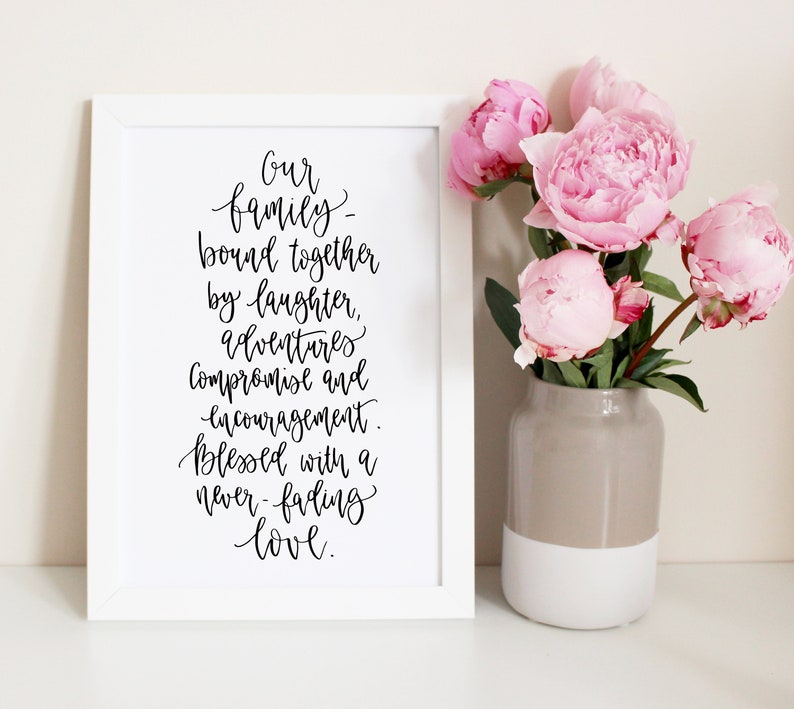 Our
family-
bound together
by laughter,
adventures
Compromise and
encouragement.
Blessed with a
never-fading
love.